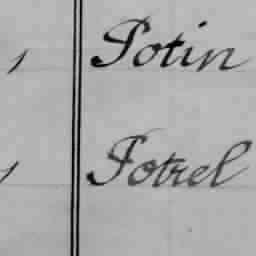 1 Potin
1 Potrel